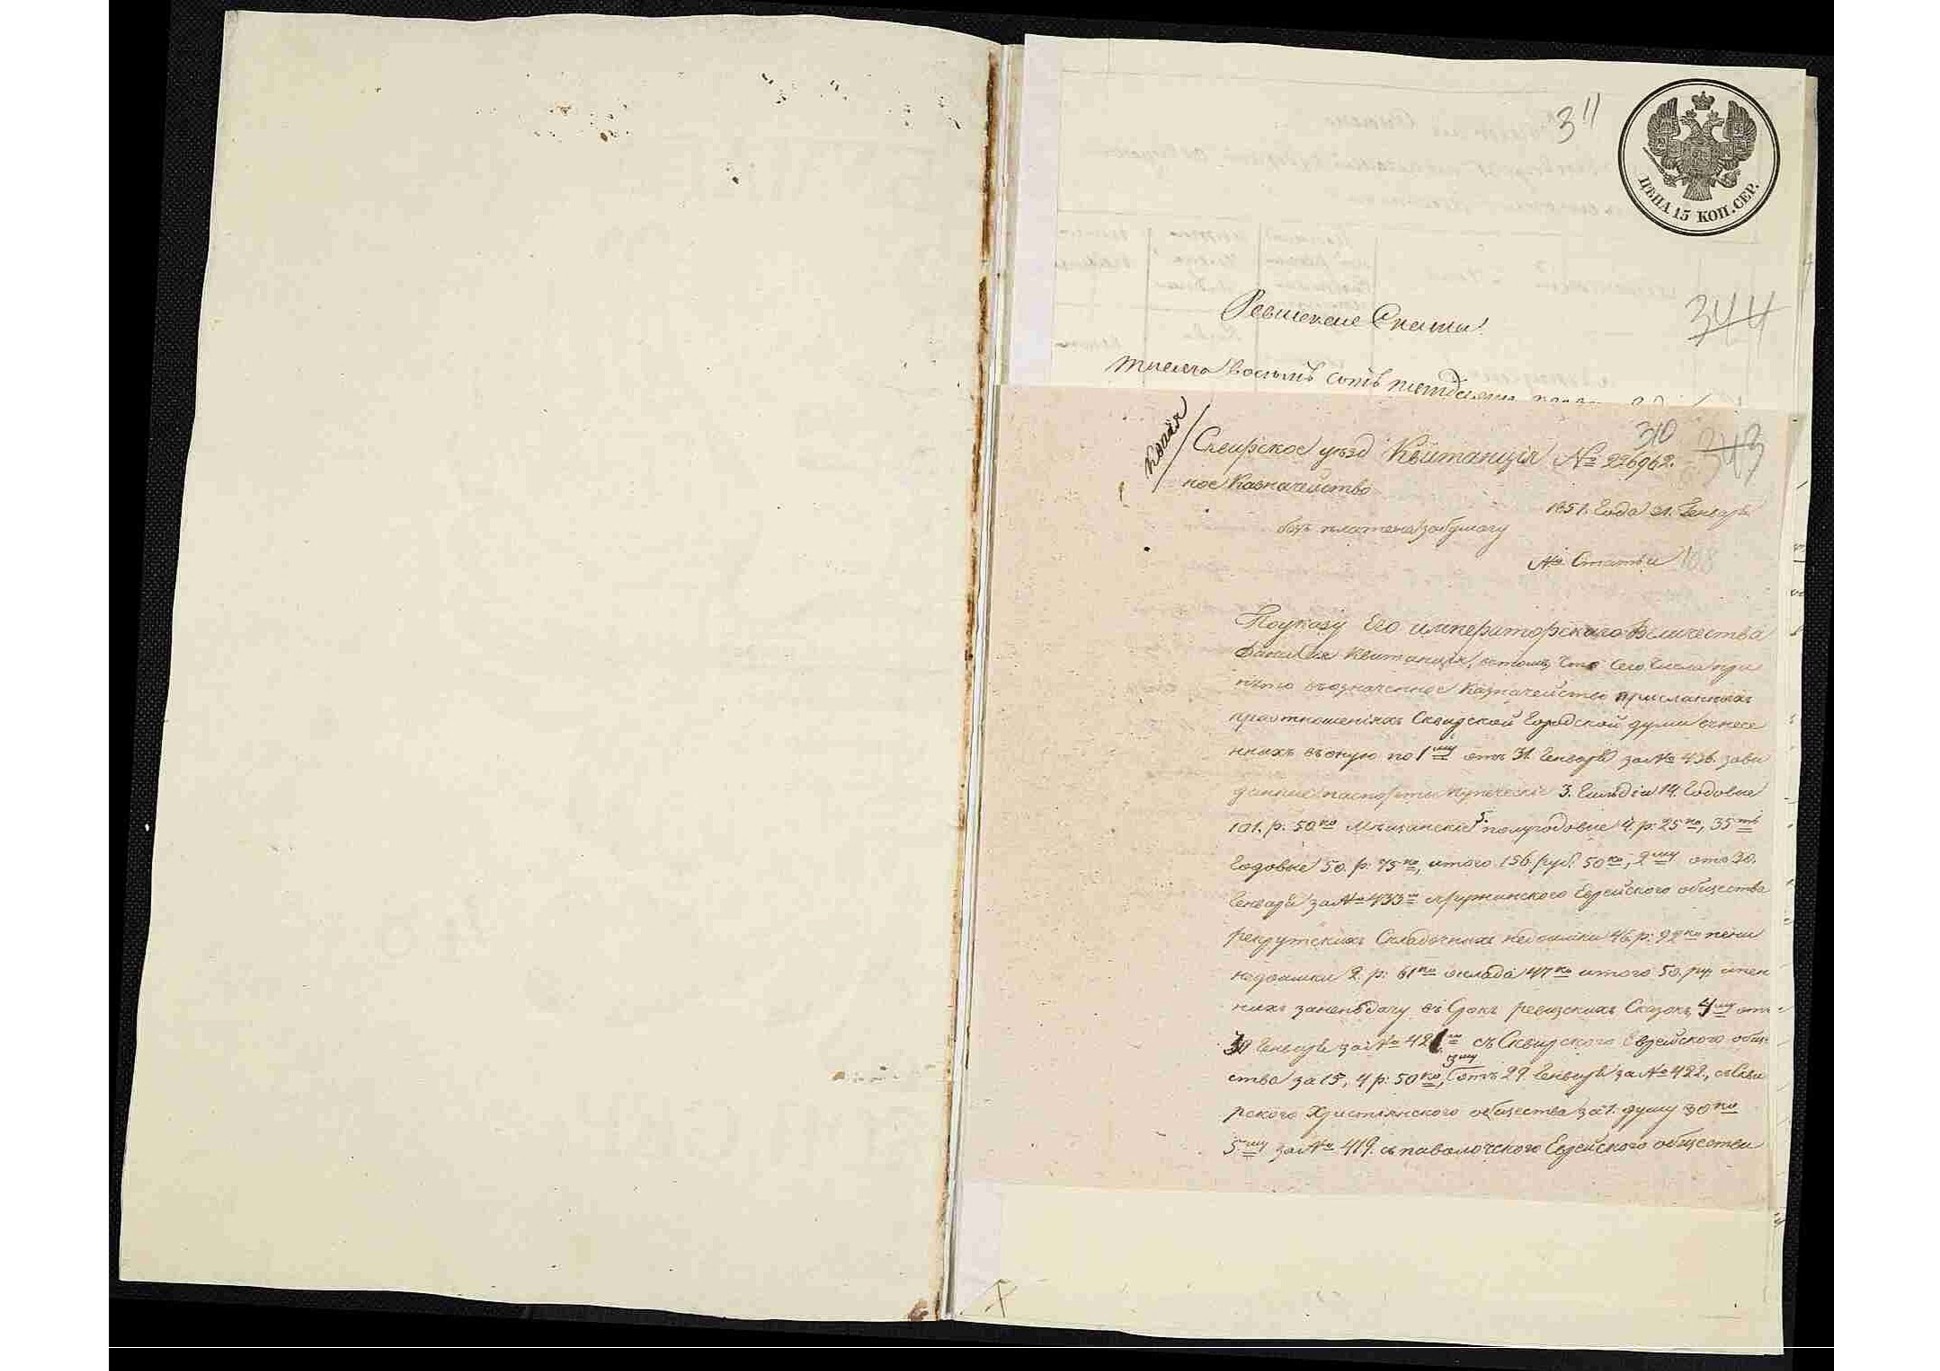 311
ЦѢНА 15 КОП. СЕР.
344
Ревизские Сказки
тысяча восемь сотъ
Копія
310
343
Сквирское уѣзд Квитанція № 226962.
ное Казначейство
1851. Года 31. Генваря
безъ платежа за бумагу
№ Статьи 108
По указу Его императорского Величества
Дана сія квитанція, въ томъ, что сего числа при
нято въ означенное Казначейство присланныхъ
при отношеніяхъ Сквирской Городской думи внесе
нныхъ въ оную по 1му отъ 31. Генваря за № 436. за ви
данние паспорты купеческіе 3. Гильдіи 14. Годовие
101. р. 50 ко Мѣщанскіе 5. полугодовие 4. р. 25 ко, 35 ть
Годовые 50. р. 75 ко, итого 156. руб. 50 ко, 2му отъ 30.
Генваря за № 433 Еврейского общества
рекрутскихъ Складочныхъ недоимки 46. р. 92 ко пени
недоимки 2. р. 61 ко оклада 47 ко итого 50. ру
нихъ за неподачу въ Срокъ ревизскихъ Сказокъ, 4му отъ
30 Генваря за № 421 съ Сквирского Еврейского обще
ства за 15, 4 р. 50 ко, 3му отъ 29. Генваря за № 422, съ Скви
рского Христіянского общества за 1. душу 30 ко
5му за № 419. съ паволочского Еврейского общества